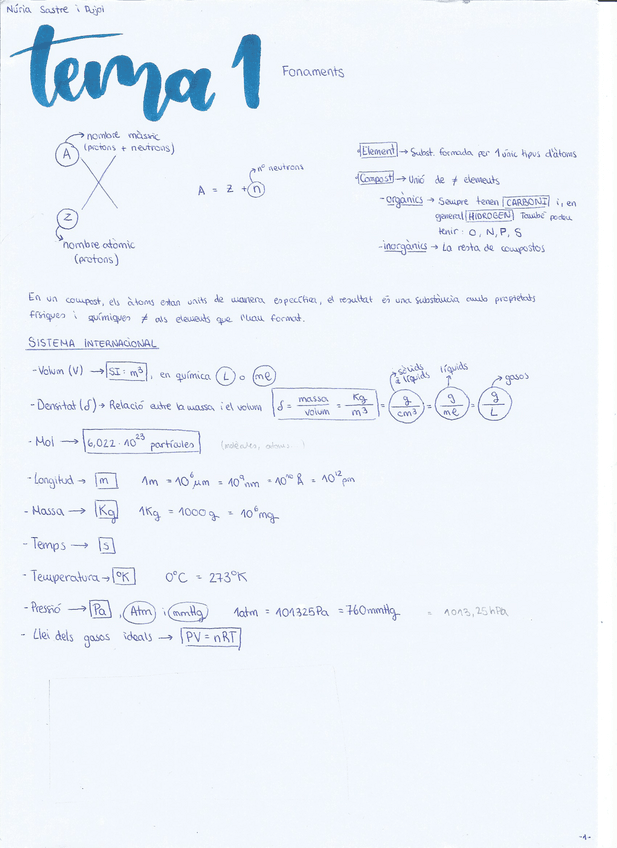 Núria Sastre i Pujol
tema 1
Fonaments
nombre màssic
(protons + neutrons)
A
Z
nombre atòmic
(protons)
nº neutrons
A = Z + n
Element → Subst. formada per 1 únic tipus d'àtoms
Compost → Unió de ≠ elements
- orgànics → Sempre tenen CARBONI i, en
general HIDROGEN. També poden
tenir: O, N, P, S
- inorgànics → La resta de compostos
En un compost, els àtoms estan units de manera específica, el resultat és una substància amb propietats
físiques i químiques ≠ als elements que l'han format.
SISTEMA INTERNACIONAL
- Volum (V) → SI: m³, en química L o ml
- Densitat (δ) → Relació entre la massa i el volum δ = massa/volum = Kg/m³ = g/cm³ = g/ml = g/L
sòlids
líquids
líquids
gasos
- Mol → 6,022·10²³ partícules (molècules, àtoms...)
- Longitud → m 1m = 10⁶μm = 10⁹nm = 10¹⁰Å = 10¹²pm
- Massa → Kg 1Kg = 1000g = 10⁶mg
- Temps → s
- Temperatura → ºK 0ºC = 273ºK
- Pressió → Pa, Atm i mmHg 1atm = 101325Pa = 760mmHg = 1013,25hPa
- Llei dels gasos ideals → PV = nRT
-1-